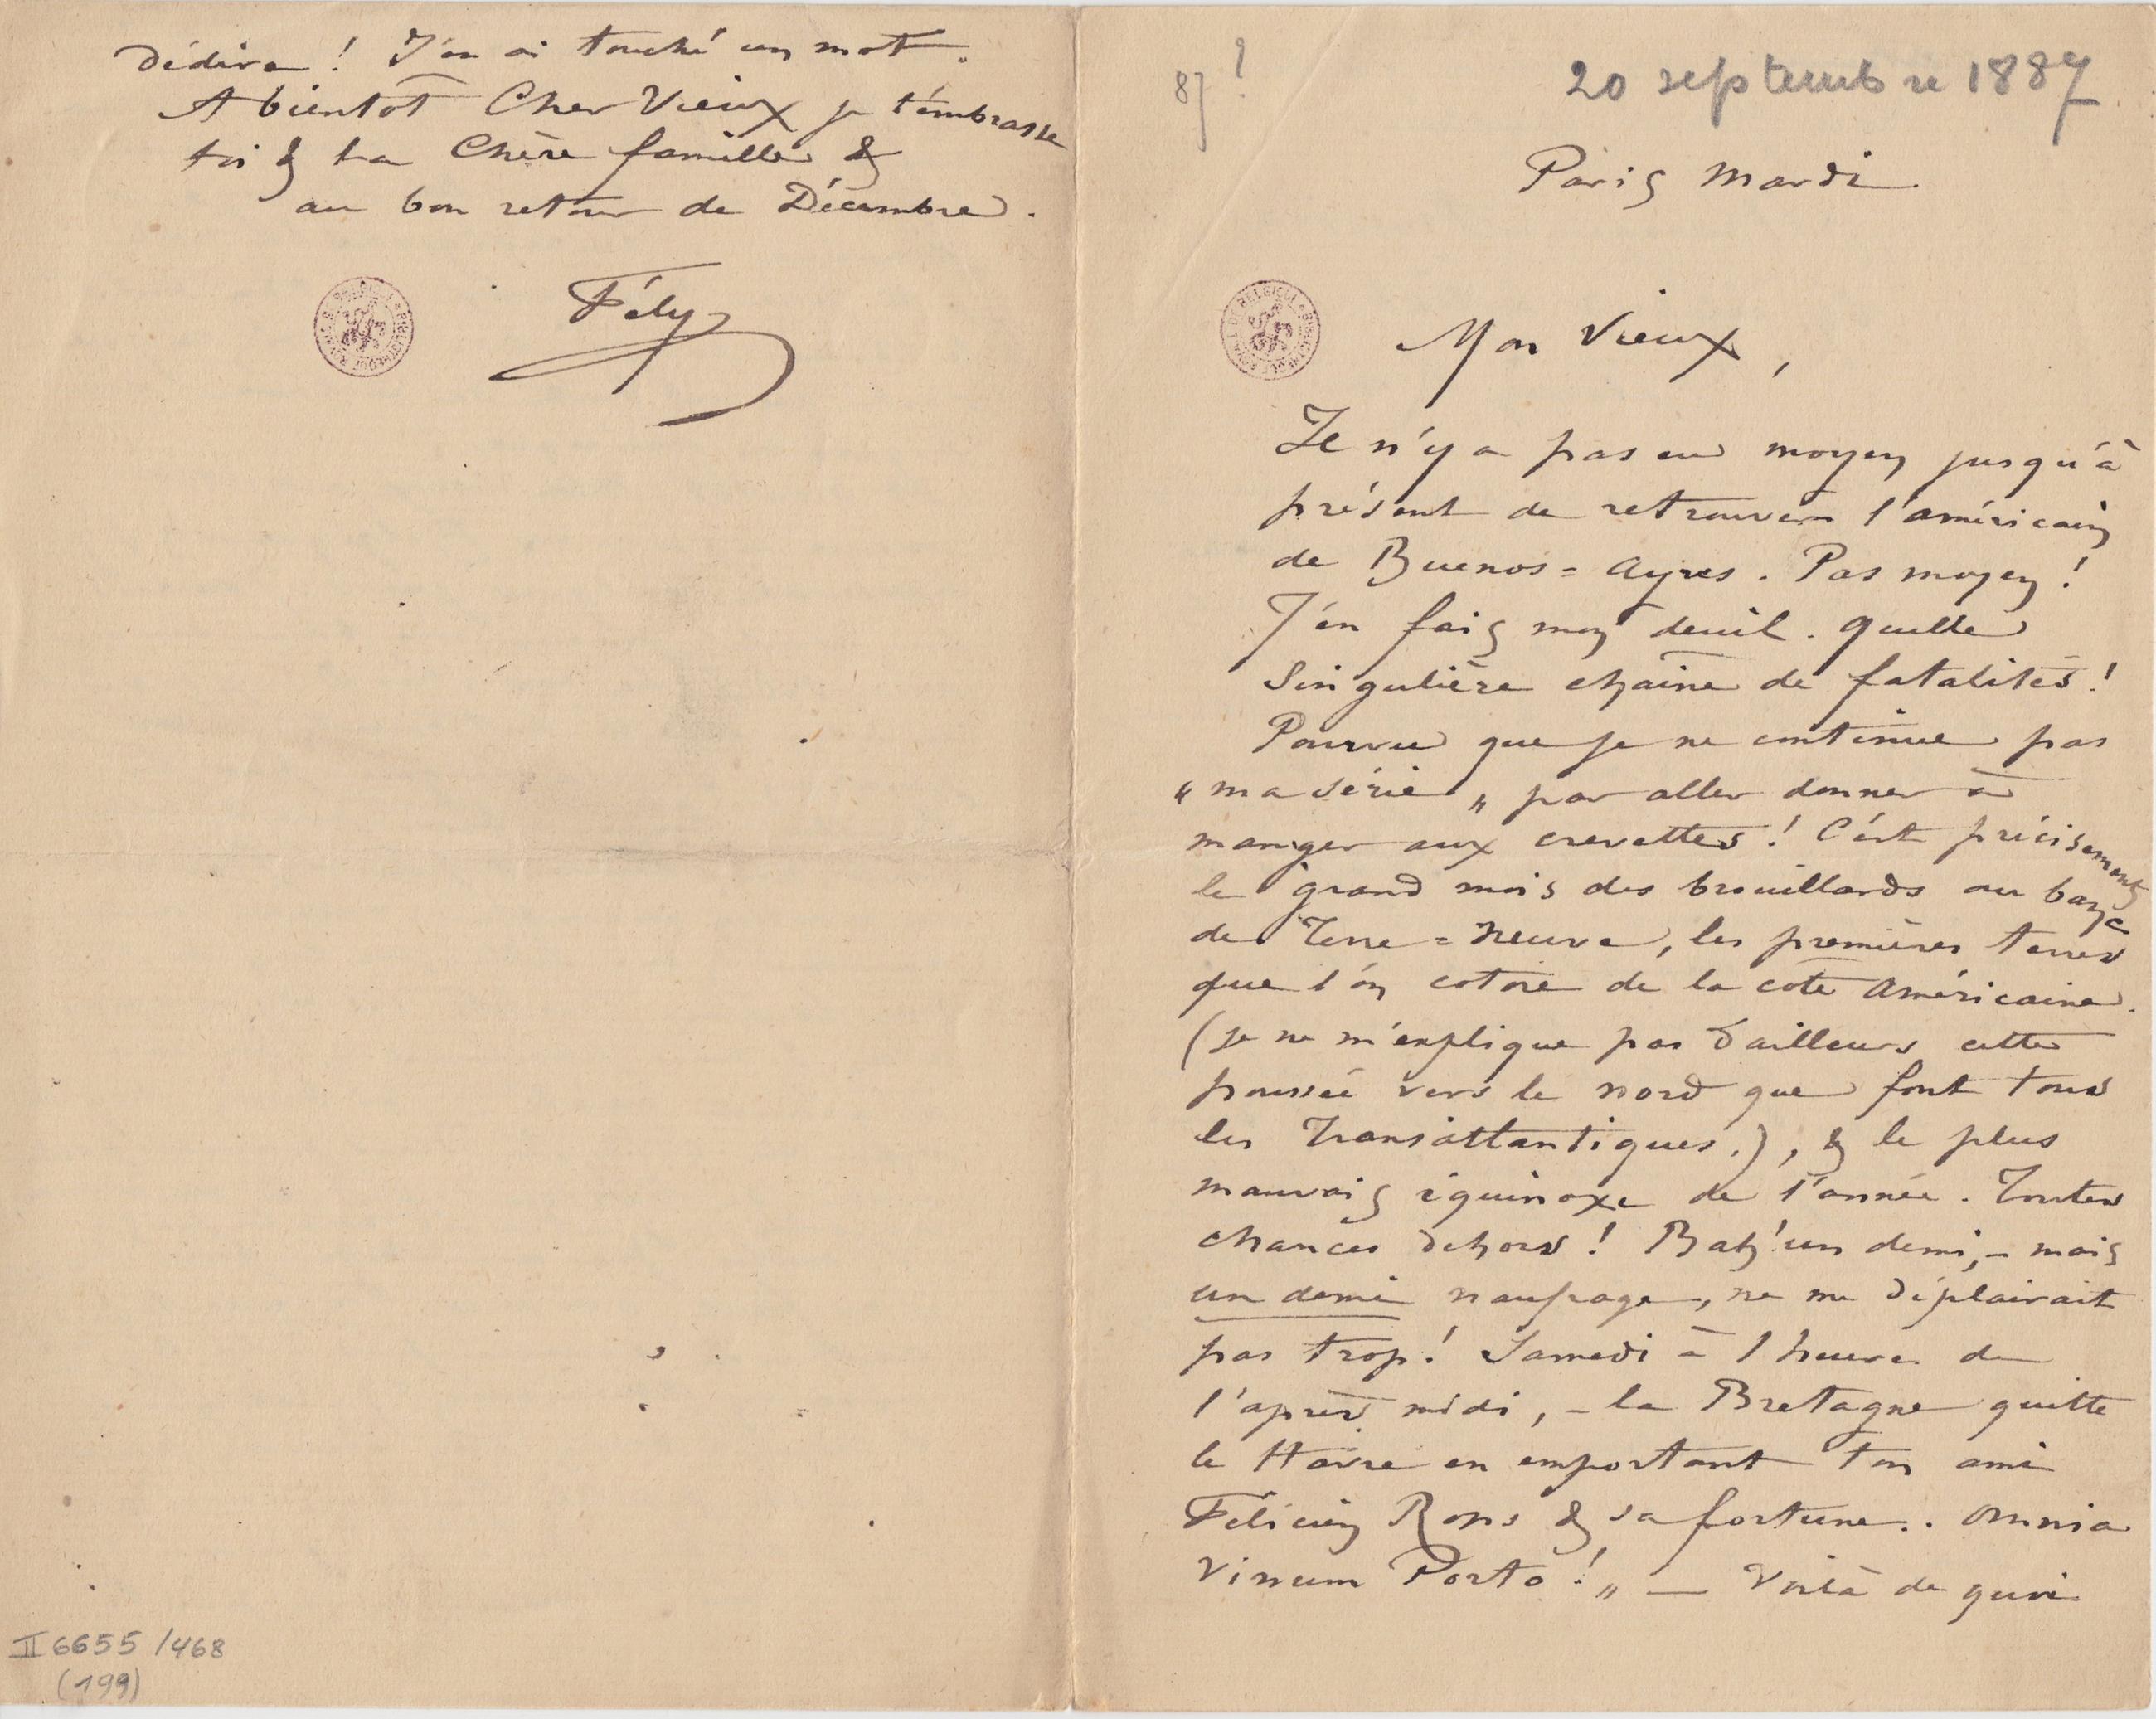 dédire ! J'en ai touché un mot.
A bientôt Cher Vieux je t'embrasse
toi & ta Chère famille &
au bon retour de Décembre.
Fély
II 6655 /468
(199)
87 ?
20 septembre 1887
Paris Mardi
Mon Vieux,
Il n'y a pas eu moyen jusqu'à
présent de retrouver l'américain
de Buenos=Ayres. Pas moyen !
J'en fais mon deuil. Quelle
Singulière chaîne de fatalités !
Pourvu que je ne continue pas
„ ma série „ par aller donner à
manger aux crevettes ! C'est précisement
le grand mois des brouillards au banc
de Terre=Neuve, les premières terres
que l'on cotoie de la cote Américaine.
(je ne m'explique pas d'ailleurs cette
poussée vers le nord que font tous
les Transatlantiques.), & le plus
mauvais équinoxe de l'année. Toutes
chances dehors ! Bah ! un demi, – mais
un demi naufrage, ne me déplairait
pas trop ! Samedi à 1 heure de
l'après midi, – la Bretagne quitte
le Havre en emportant ton ami
Félicien Rops & sa fortune.. Omnia
Vinum Porto ! „ — Voilà de quoi